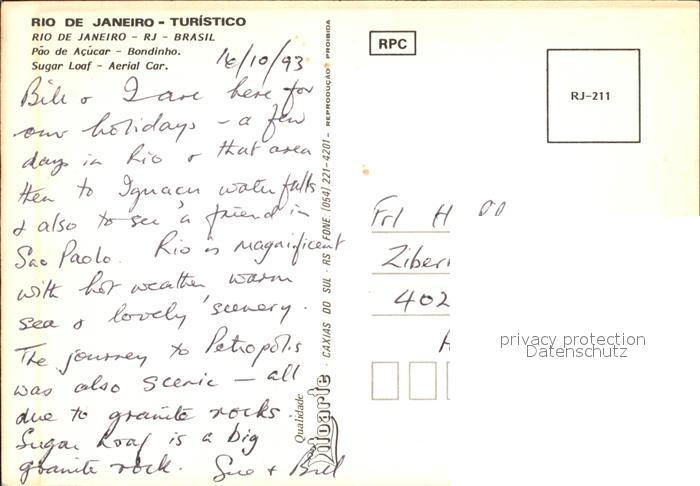 RIO DE JANEIRO - TURÍSTICO
RIO DE JANEIRO - RJ - BRASIL
Pão de Açúcar - Bondinho.
Sugar Loaf - Aerial Car.
16/10/93
Bill & I are here for
our holidays - a few
days in Rio & that area
then to Iguacu waterfalls
& also to see a friend in
Sao Paolo. Rio is magnificent
with hot weather warm
sea & lovely scenery.
The journey to Petropolis
was also scenic - all
due to granite rocks.
Sugar Loaf is a big
granite rock. Sue + Bill
Qualidade
CAXIAS DO SUL - RS - FONE (054) 221-4201 - REPRODUÇÃO PROIBIDA
RPC
RJ-211
Frl H
Ziberi
402
privacy protection
Datenschutz